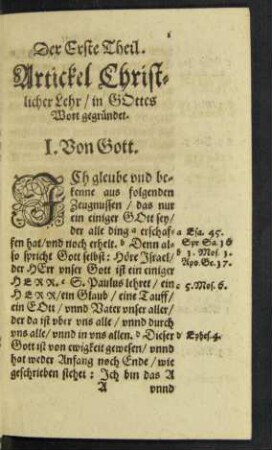 Der Erste Theil.
Artickel Christ-
licher Lehr / in GOttes
Wort gegründet.
I. Von Gott.
ICh gleube vnd be-
kenne aus folgenden
Zeugnussen / das nur
ein einiger GOtt sey /
der alle ding a erschaf-
fen hat / vnd noch erhelt. b Denn al-
so spricht Gott selbst: Höre Israel /
der HErr vnser Gott ist ein einiger
HERR. c S. Paulus lehret / ein
HERR / ein Glaub / eine Tauff /
ein GOtt / vnnd Vater vnser aller /
der da ist vber vns alle / vnnd durch
vns alle / vnnd in vns allen. d Dieser
Gott ist von ewigkeit gewesen / vnnd
hat weder Anfang noch Ende / wie
geschrieben stehet: Ich bin das A
A vnnd
a Esa. 45.
Spr Sa. 16
b 1. Mos. 1.
Apo. Ge. 17.
c 5. Mos. 6.
d Ephes. 4.